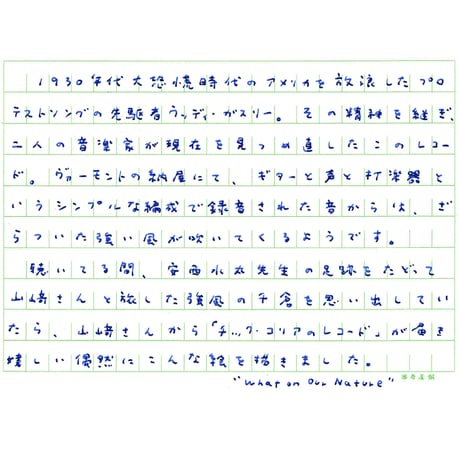 1930年代大恐慌時代のアメリカを放浪したプロ
テストソングの先駆者ウッディ・ガスリー。その精神を継ぎ、
二人の音楽家が現在を見つめ直したこのレコー
ド。ヴァーモントの納屋にて、ギターと声と打楽器と
いうシンプルな編成で録音された音からは、ざ
らついた強い風が吹いてくるようです。
聴いてる間、安西水丸先生の足跡をたどって
山﨑さんと旅した強風の千倉を思い出してい
たら、山﨑さんから「チック・コリアのレコード」が届き
嬉しい偶然にこんな絵を描きました。
"What on Our Nature"